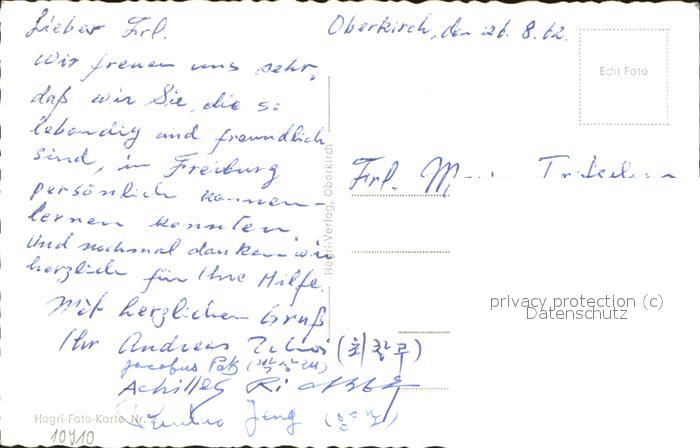 Lieber Frl.
Oberkirch, den 26. 8. 62.
Wir freuen uns sehr,
daß wir Sie, die so
lebendig und freundlich
sind, in Freiburg
persönlich kennen-
lernen konnten.
Und nochmal danken wir
herzlich für Ihre Hilfe.
Mit herzlichen Gruß
Ihr Andreas
Jacobus
Achilles
Jeng
Echt Foto
Frl.
Hegri-Verlag, Oberkirch
privacy protection (c)
Datenschutz
Hegri-Foto-Karte Nr.
10910